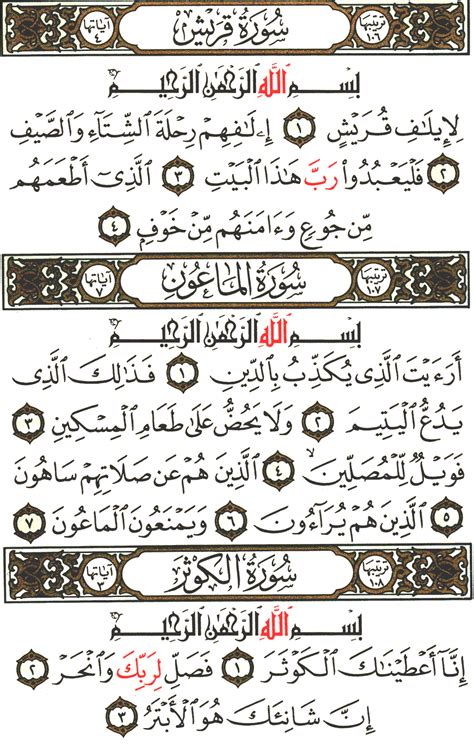 ترتيبها ١٠٦ سُورَةُ قُرَيْشٍ آياتها ٤
بِسْمِ ٱللَّهِ ٱلرَّحْمَٰنِ ٱلرَّحِيمِ
لِإِيلَٰفِ قُرَيْشٍ ١ إِۦلَٰفِهِمْ رِحْلَةَ ٱلشِّتَآءِ وَٱلصَّيْفِ
٢ فَلْيَعْبُدُوا۟ رَبَّ هَٰذَا ٱلْبَيْتِ ٣ ٱلَّذِىٓ أَطْعَمَهُم
مِّن جُوعٍ وَءَامَنَهُم مِّنْ خَوْفٍۭ ٤
ترتيبها ١٠٧ سُورَةُ المَاعُونِ آياتها ٧
بِسْمِ ٱللَّهِ ٱلرَّحْمَٰنِ ٱلرَّحِيمِ
أَرَءَيْتَ ٱلَّذِى يُكَذِّبُ بِٱلدِّينِ ١ فَذَٰلِكَ ٱلَّذِى
يَدُعُّ ٱلْيَتِيمَ ٢ وَلَا يَحُضُّ عَلَىٰ طَعَامِ ٱلْمِسْكِينِ ٣
فَوَيْلٌ لِّلْمُصَلِّينَ ۙ ٤ ٱلَّذِينَ هُمْ عَن صَلَاتِهِمْ سَاهُونَ
٥ ٱلَّذِينَ هُمْ يُرَآءُونَ ٦ وَيَمْنَعُونَ ٱلْمَاعُونَ ٧
ترتيبها ١٠٨ سُورَةُ الكَوْثَرِ آياتها ٣
بِسْمِ ٱللَّهِ ٱلرَّحْمَٰنِ ٱلرَّحِيمِ
إِنَّآ أَعْطَيْنَٰكَ ٱلْكَوْثَرَ ١ فَصَلِّ لِرَبِّكَ وَٱنْحَرْ ٢
إِنَّ شَانِئَكَ هُوَ ٱلْأَبْتَرُ ٣